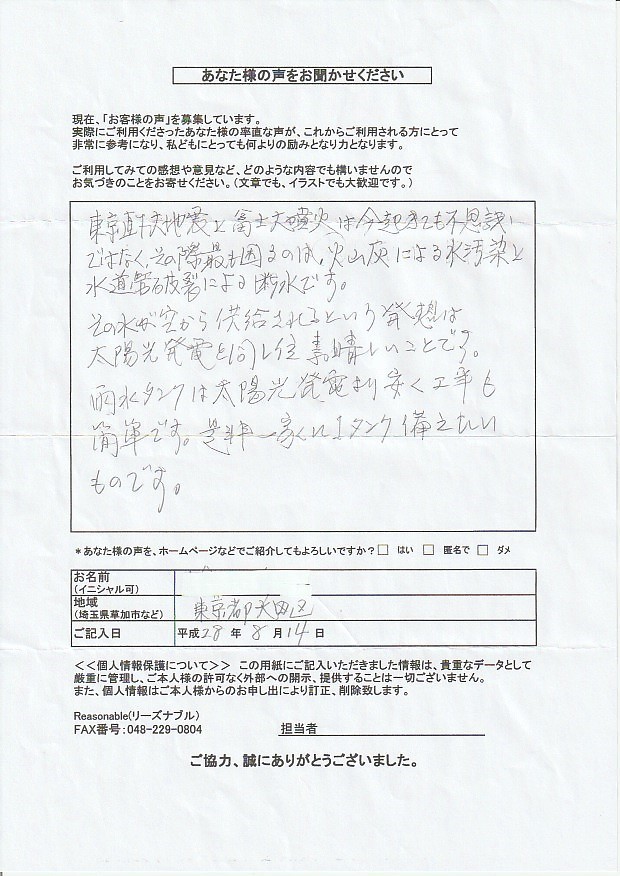 あなた様の声をお聞かせください
現在、「お客様の声」を募集しています。
実際にご利用くださったあなた様の率直な声が、これからご利用される方にとって
非常に参考になり、私どもにとっても何よりの励みとなり力となります。
ご利用してみての感想や意見など、どのような内容でも構いませんので
お気づきのことをお寄せください。（文章でも、イラストでも大歓迎です。）
東京直下地震と富士大噴火は今起きても不思議
ではなく、その際最も困るのは、火山灰による水汚染と
水道管破裂による断水です。
その水が空から供給されるという発想は
太陽光発電と同じ位素晴しいことです。
雨水タンクは太陽光発電より安く工事も
簡単です。是非一家に1タンク備えたい
ものです。
＊あなた様の声を、ホームページなどでご紹介してもよろしいですか？□ はい □ 匿名で □ ダメ
お名前
（イニシャル可）
地域
（埼玉県草加市など） 東京都大田区
ご記入日 平成28年 8月14日
＜＜個人情報保護について＞＞ この用紙にご記入いただきました情報は、貴重なデータとして
厳重に管理し、ご本人様の許可なく外部への開示、提供することは一切ございません。
また、個人情報はご本人様からのお申し出により訂正、削除致します。
Reasonable（リーズナブル）
FAX番号：048-229-0804 担当者
ご協力、誠にありがとうございました。